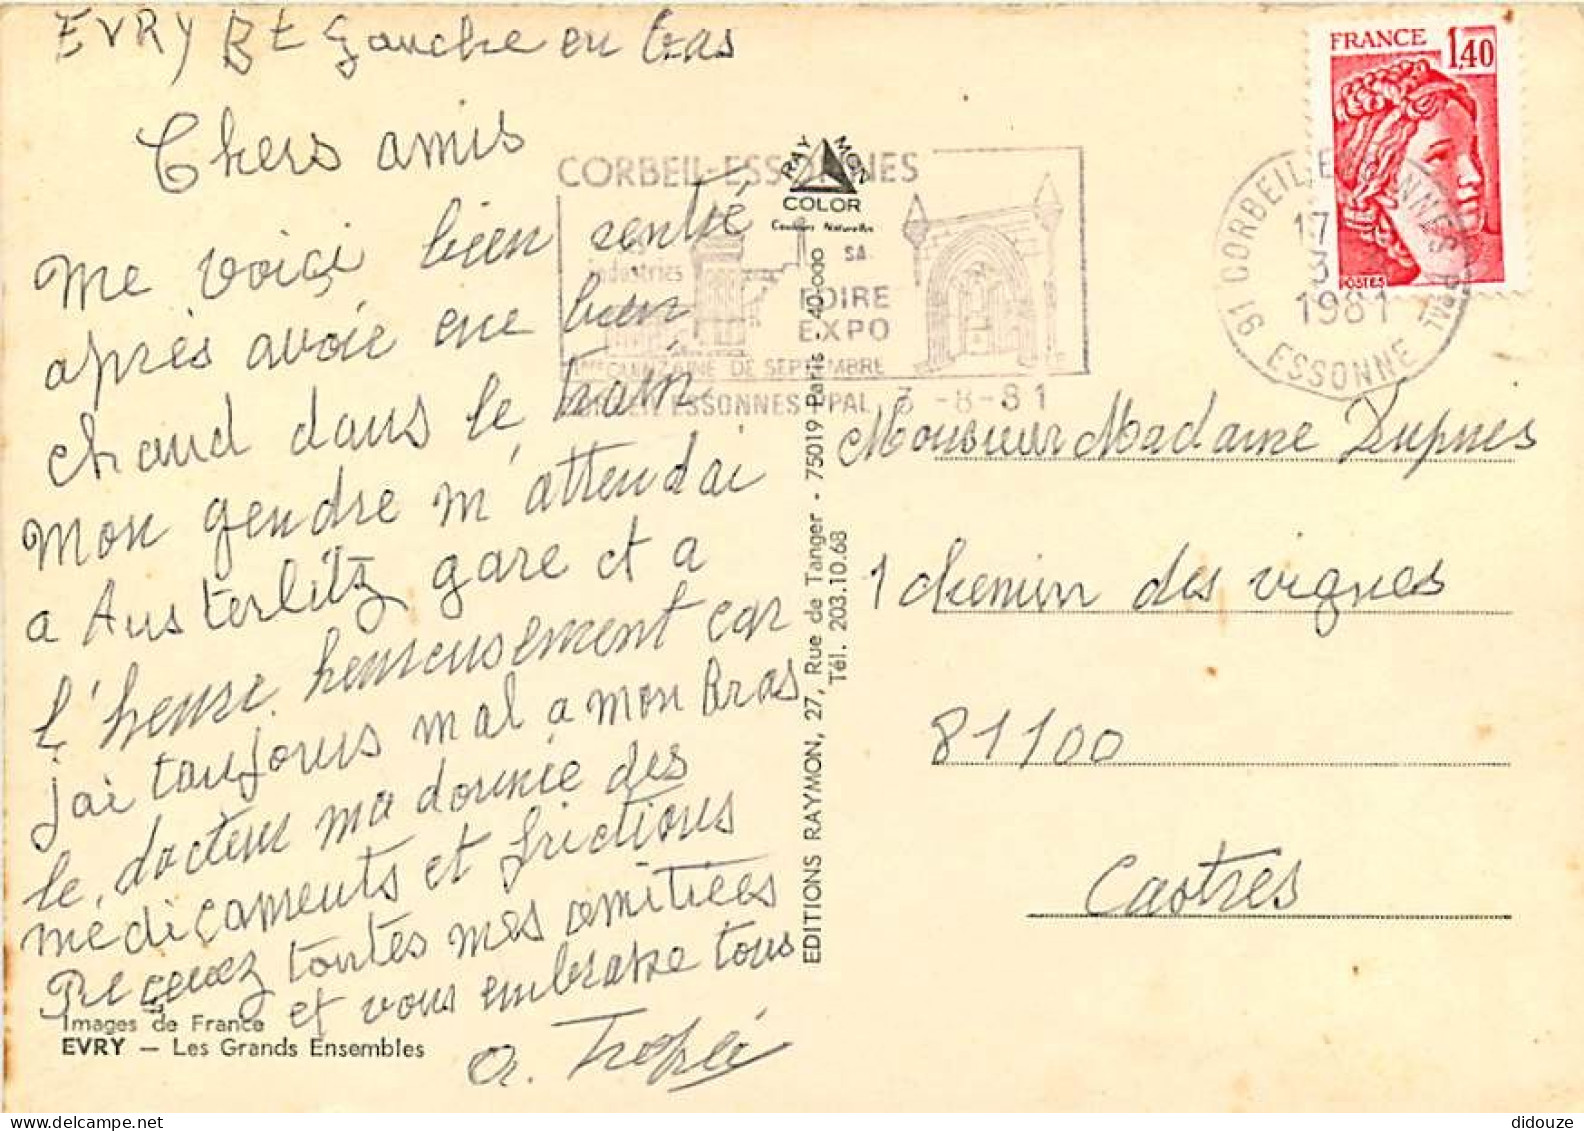 EVRY Bt gauche en bas
Chers amis
me voiçi bien rentré
après avoir eue bien
chaud dans le train
Mon gendre m'attendai
a Austerlitz gare et a
l'heure heureusement car
j'ai toujours mal a mon bras
le docteur ma donnie des
médicaments et frictions
Recevez toutes mes amitiées
et vous embrasse tous
Images de France
EVRY — Les Grands Ensembles
CORBEIL-ESSONNES
ses
industries
SA
FOIRE
EXPO
QUINZAINE DE SEPTEMBRE
CORBEIL ESSONNES PPAL 3-8-81
RAYMON
COLOR
Couleurs Naturelles
EDITIONS RAYMON, 27, Rue de Tanger - 75019 Paris - 40-000
Tél. 203.10.68
FRANCE 1,40
POSTES
91 CORBEIL ESSONNES PPAL
17
3
1981
ESSONNE
Monsieur Madame
1 chemin des vignes
81100
Castres
didouze